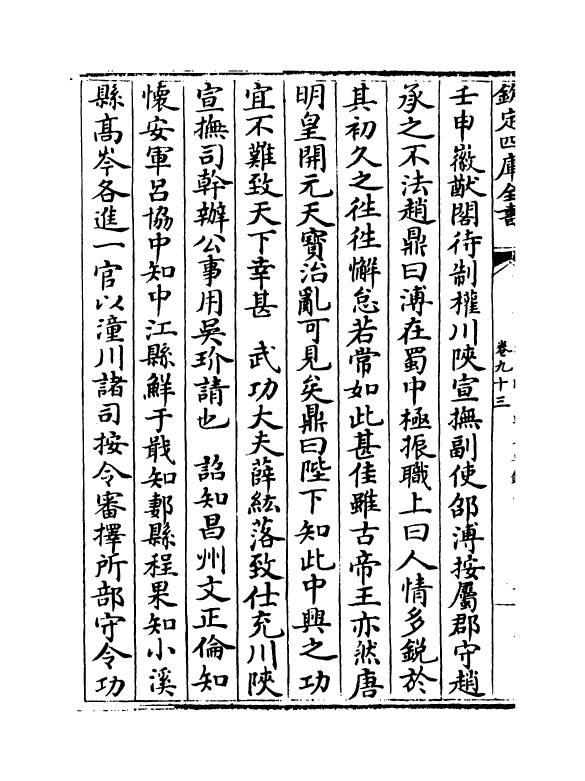 欽定四庫全書
卷九十三
壬申徽猷閣待制權川陝宣撫副使邵溥按屬郡守趙
承之不法趙鼎曰溥在蜀中極振職上曰人情多銳於
其初久之徃徃懈怠若常如此甚佳雖古帝王亦然唐
明皇開元天寶治亂可見矣鼎曰陛下知此中興之功
宜不難致天下幸甚 武功大夫薛紘落致仕充川陝
宣撫司幹辦公事用吳玠請也 詔知昌州文正倫知
懷安軍呂協中知中江縣鮮于戢知郪縣程果知小溪
縣髙岑各進一官以潼川諸司按令審擇所部守令功